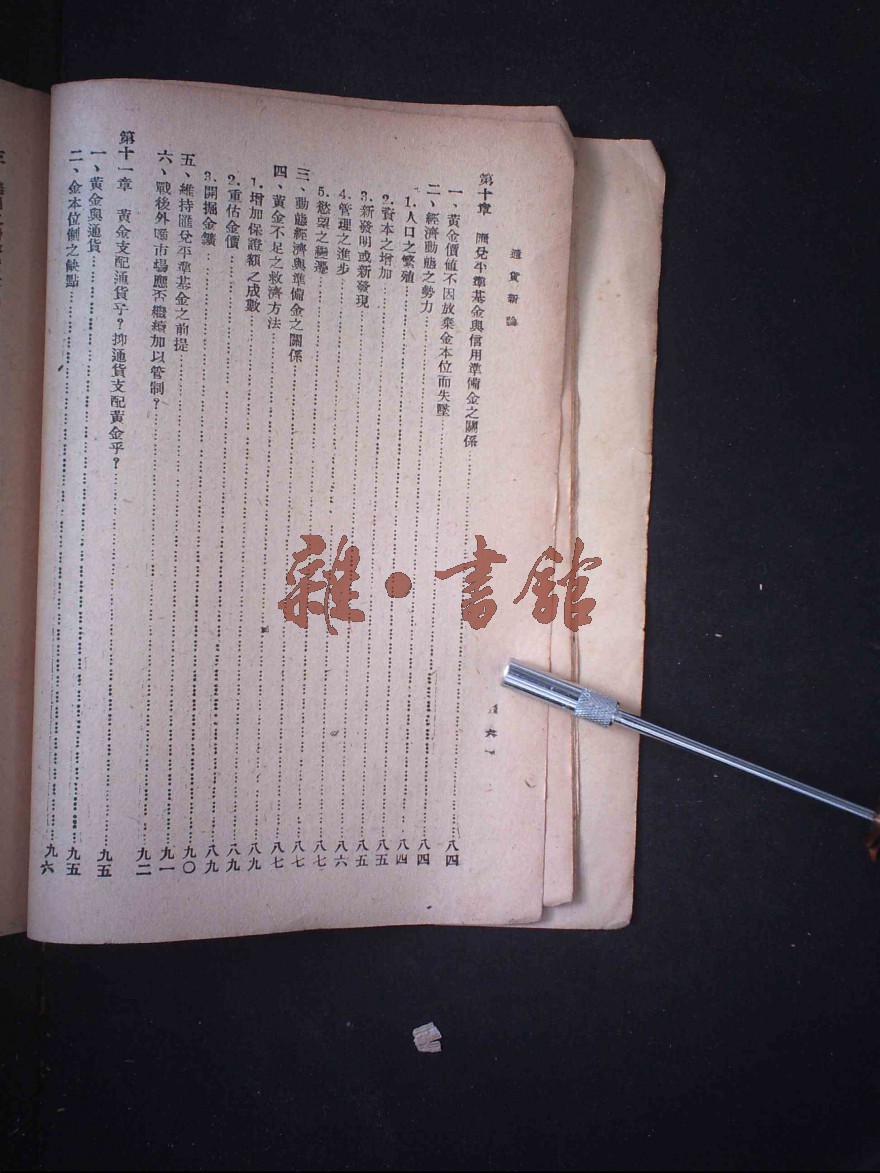 通貨新論
六
第十章 匯兌平準基金與信用準備金之關係……八四
一、黃金價值不因放棄金本位而失墜……八四
二、經濟動態之勢力……八四
1.人口之繁殖……八五
2.資本之增加……八五
3.新發明或新發現……八六
4.管理之進步……八七
5.慾望之變遷……八七
三、動態經濟與準備金之關係……八七
四、黃金不足之救濟方法……八九
1.增加保證額之成數……八九
2.重估金價……八九
3.開掘金鑛……九〇
五、維持匯兌平準基金之前提……九一
六、戰後外匯市場應否繼續加以管制？……九二
第十一章 黃金支配通貨乎？抑通貨支配黃金乎？……九五
一、黃金與通貨……九五
二、金本位制之缺點……九六
雜·書館